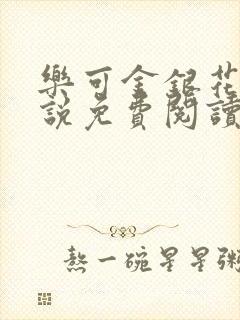 樂可金銀花
說免費閱讀
熬一碗星星粥